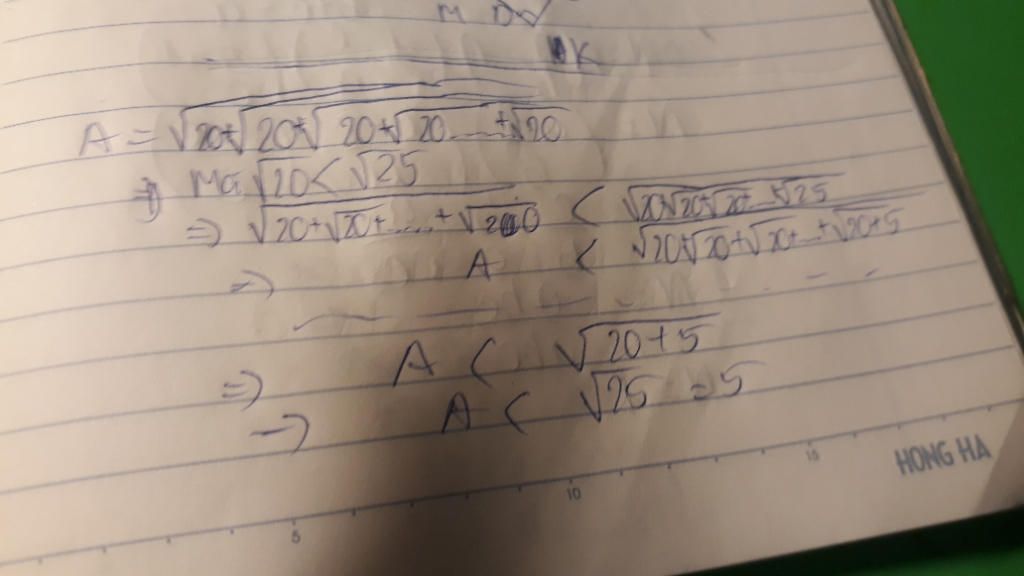 M
K
A = √20+√20+√20+√20.....+√20
⇒ Mà √20 < √25
⇒ √20+√20+.....+√20 < √20+√20+√20+...+√25
⇒ A < √20+√20+√20+...+√20+5
⇒ A < √20+5
→ A < √25 = 5
5 10 15
HONG HA